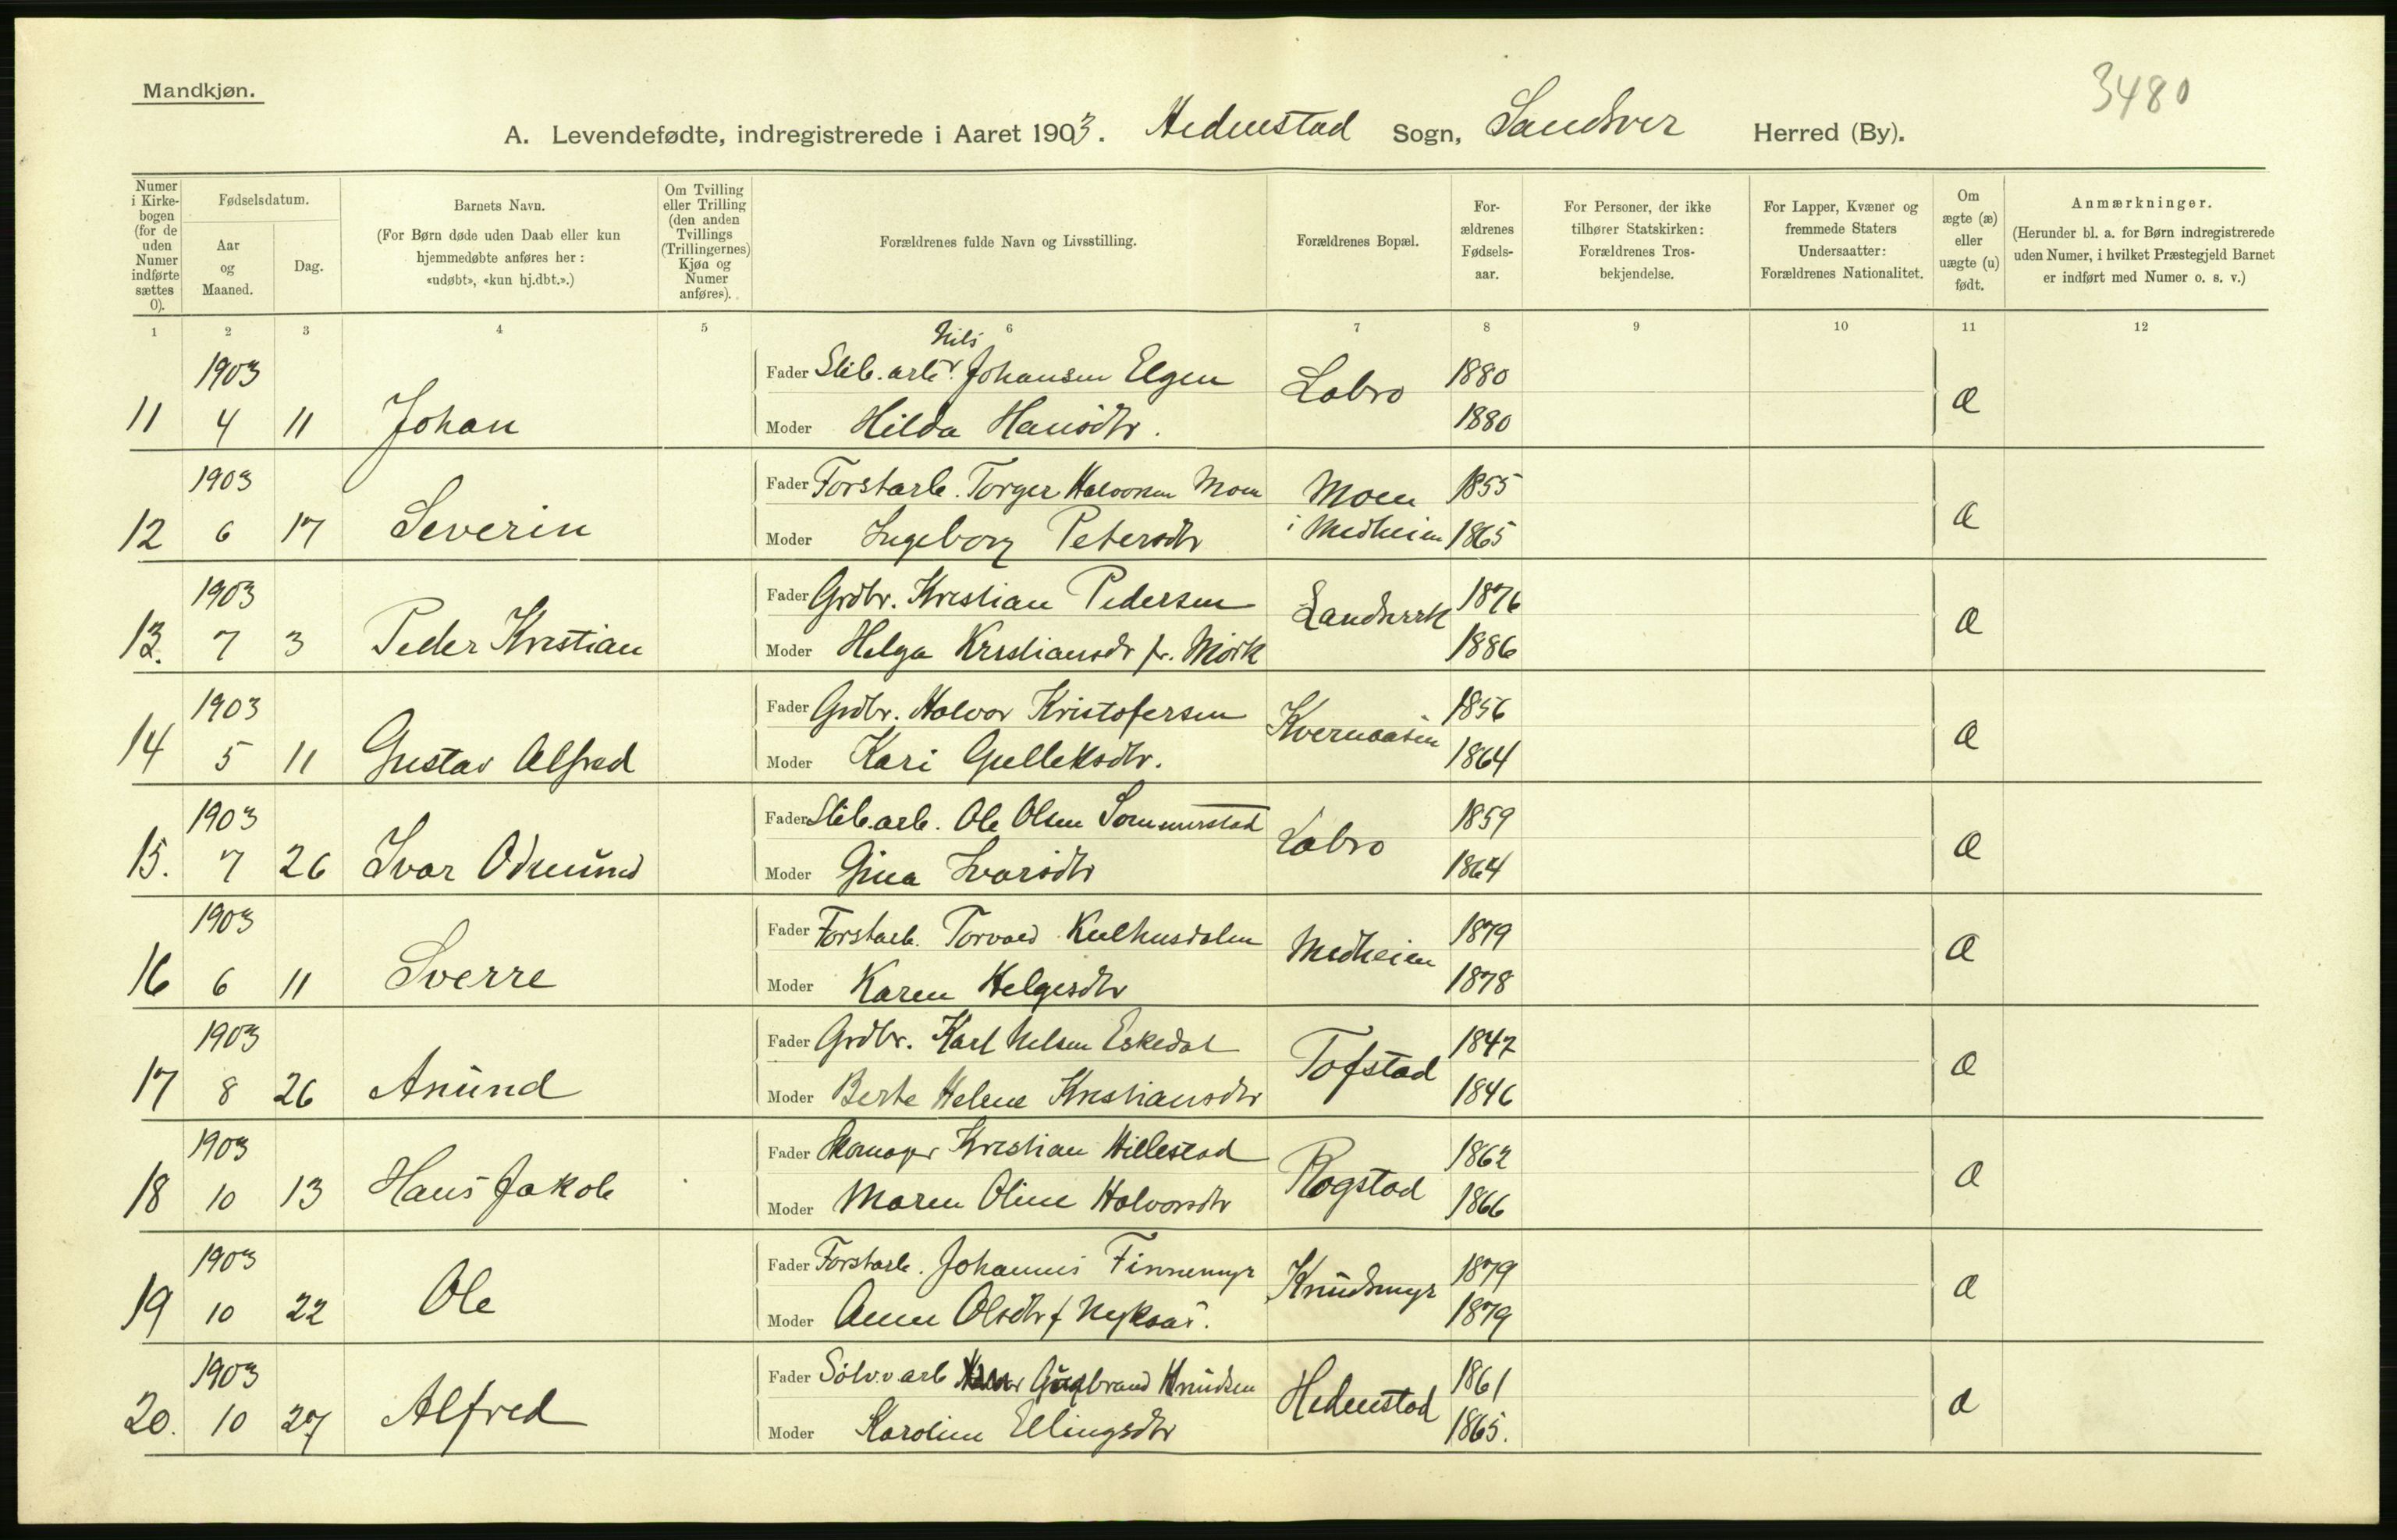 Mandkjøn.
3480
A. Levendefødte, indregistrerede i Aaret 1903. Hedenstad Sogn, Sandsver Herred (By).
Numer i Kirkebogen (for de uden Numer indførte sættes 0).
Fødselsdatum.
Aar og Maaned.
Dag.
Barnets Navn.
(For Børn døde uden Daab eller kun hjemmedøbte anføres her: «udøbt», «kun hj.dbt.».)
Om Tvilling eller Trilling (den anden Tvillings (Trillingernes) Kjøn og Numer anføres).
Forældrenes fulde Navn og Livsstilling.
Forældrenes Bopæl.
Forældrenes Fødselsaar.
For Personer, der ikke tilhører Statskirken: Forældrenes Trosbekjendelse.
For Lapper, Kvæner og fremmede Staters Undersaatter: Forældrenes Nationalitet.
Om ægte (æ) eller uægte (u) født.
Anmærkninger.
(Herunder bl. a. for Børn indregistrerede uden Numer, i hvilket Præstegjeld Barnet er indført med Numer o. s. v.)
1 2 3 4 5 6 7 8 9 10 11 12
1903 Fader Slib.arb. Nils Johansen Elgen Labro 1880
11 4 11 Johan Moder Hilda Hansdtr. 1880 æ
1903 Fader Forstarb. Torger Halvorsen Moen Moen 1855
12 6 17 Severin Moder Ingeborg Petersdtr i Medheien 1865 æ
1903 Fader Grdbr. Kristian Pedersen Landverk 1876
13. 7 3 Peder Kristian Moder Helga Kristiansdr f. Mørk 1886 æ
1903 Fader Grdbr. Halvor Kristofersen Kvernaasen 1856
14 5 11 Gustav Alfred Moder Kari Gulleksdtr. 1864 æ
1903 Fader Slib.arb. Ole Olsen Sommerstad Labro 1859
15. 7 26 Ivar Odmund Moder Gina Ivarsdtr 1864 æ
1903 Fader Forstarb. Torvald Kulhusdalen Medheien 1879
16 6 11 Sverre Moder Karen Helgesdtr 1878 æ
1903 Fader Grdbr. Karl Nelsen Eskedal Tofstad 1847
17 8 26 Anund Moder Berte Helene Kristiansdtr 1846 æ
1903 Fader Skomager Kristian Hillestad Rogstad 1862
18 10 13 Hans Jakob Moder Maren Oline Halvorsdtr 1866 æ
1903 Fader Forstarb. Johannes Finnemyr Knudsmyr 1879
19 10 22 Ole Moder Anne Olsdtr f Myksås. 1879 æ
1903 Fader Sølvv.arb Gudbrand Knudsen Hedenstad 1861
20. 10 27 Alfred Moder Karoline Ellingsdtr 1865. æ